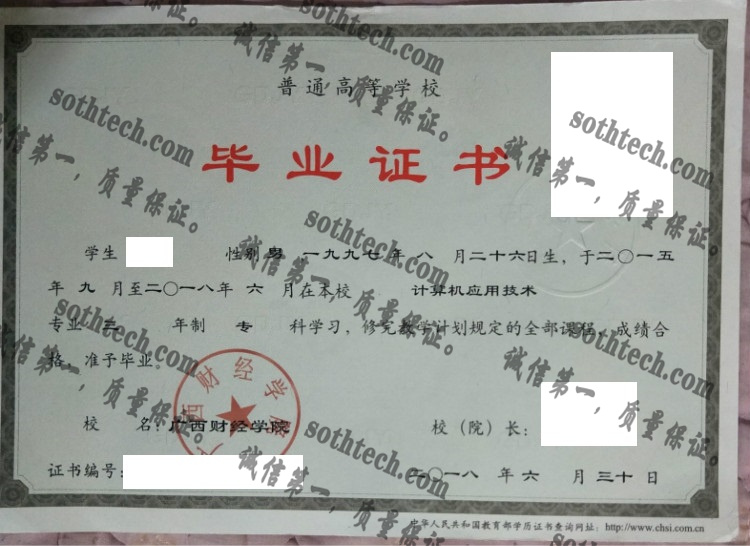 普通高等学校
毕业证书
学生 性别 男 一九九七 年 八 月二十六日生，于二〇一五
年 九 月至二〇一八年 六 月在本校 计算机应用技术
专业 三 年制 专 科学习，修完教学计划规定的全部课程，成绩合
格，准予毕业。
校 名：广西财经学院
校（院）长：
证书编号：
二〇一八 年 六 月 三十 日
中华人民共和国教育部学历证书查询网址：http://www.chsi.com.cn
广西财经学院
sothtech.com
诚信第一，质量保证。
sothtech.com
诚信第一，质量保证。
sothtech.com
诚信第一，质量保证。
sothtech.com
诚信第一，质量保证。
sothtech.com
诚信第一，质量保证。
sothtech.com
诚信第一，质量保证。
sothtech.com
诚信第一，质量保证。